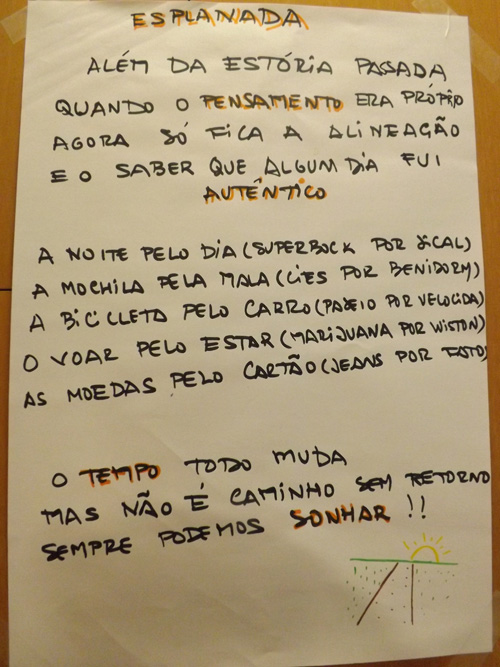 ESPLANADA
ALÉM DA ESTÓRIA PASSADA
QUANDO O PENSAMENTO ERA PRÓPRIO
AGORA SÓ FICA A ALINEAÇÃO
E O SABER QUE ALGUM DIA FUI
AUTÊNTICO
A NOITE PELO DIA (SUPERBOCK POR SICAL)
A MOCHILA PELA MALA (CIES POR BENIDORM)
A BICICLETA PELO CARRO (PASEIO POR VELOCIDA)
O VOAR PELO ESTAR (MARIJUANA POR WISTON)
AS MOEDAS PELO CARTÃO (JEANS POR FATO)
O TEMPO TODO MUDA
MAS NÃO É CAMINHO SEM RETORNO
SEMPRE PODEMOS SONHAR !!